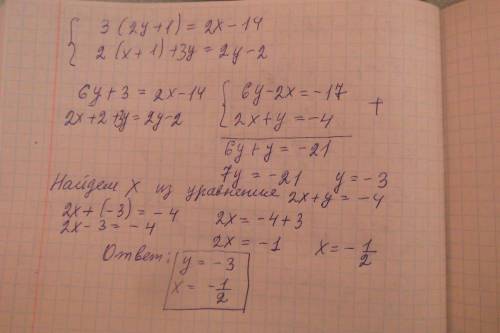 { 3(2y+1) = 2x-14
2(x+1)+3y = 2y-2
6y+3 = 2x-14 { 6y-2x = -17
2x+2+3y = 2y-2 2x+y = -4 +
6y+y = -21
7y = -21 y = -3
Найдем x из уравнение 2x+y = -4
2x+(-3) = -4 2x = -4+3
2x-3 = -4
2x = -1 x = -1/2
Ответ: y = -3
x = -1/2